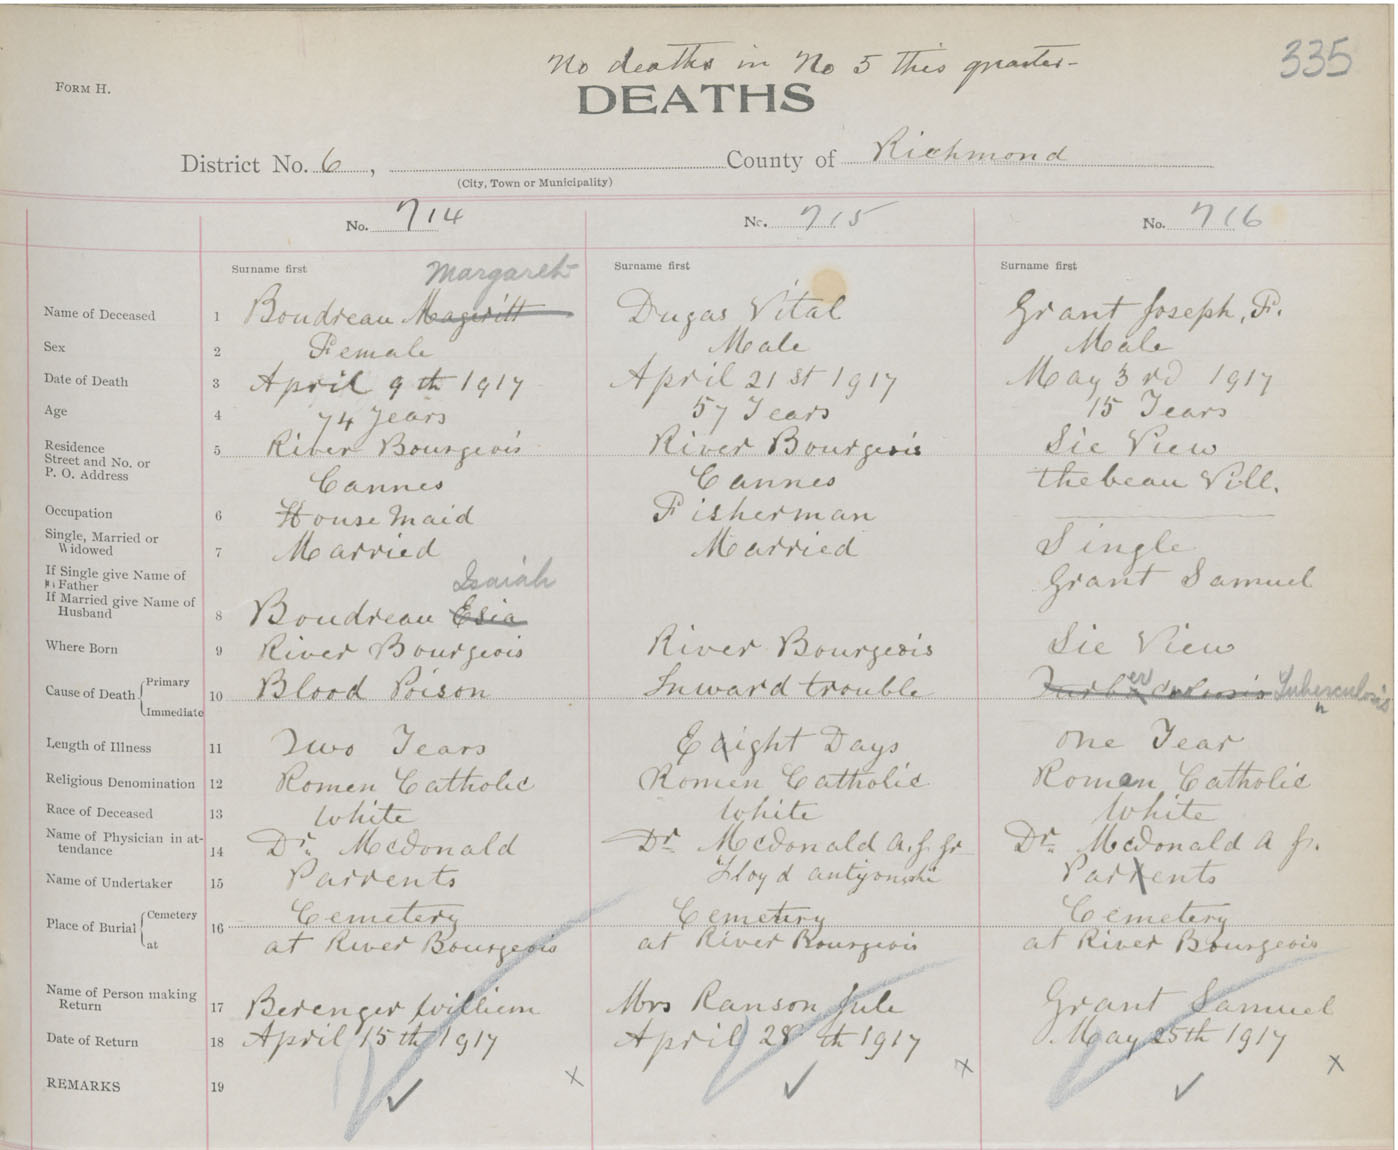 No deaths in No 5 this quarter-
335
FORM H.
DEATHS
District No. 6, County of Richmond
(City, Town or Municipality)
No. 714 No. 715 No. 716
Surname first Surname first Surname first
Margaret
Name of Deceased 1 Boudreau Mageritt Dugas Vital Grant Joseph, F.
Sex 2 Female Male Male
Date of Death 3 April 9th 1917 April 21st 1917 May 3rd 1917
Age 4 74 Years 57 Years 15 Years
Residence 5 River Bourgeois River Bourgeois Sie View
Street and No. or
P. O. Address Cannes Cannes thebeau Vill.
Occupation 6 House Maid Fisherman
Single, Married or
Widowed 7 Married Married Single
If Single give Name of
Father Isaiah Grant Samuel
If Married give Name of
Husband 8 Boudreau Esia
Where Born 9 River Bourgeois River Bourgeois Sie View
Cause of Death Primary 10 Blood Poison Inward trouble Tuberculosis
Immediate
Length of Illness 11 Two Years Eaight Days one Year
Religious Denomination 12 Romen Catholic Romen Catholic Romen Catholic
Race of Deceased 13 White White White
Name of Physician in at-
tendance 14 Dr. McDonald Dr. McDonald A. J. Jr Dr. McDonald A J.
Name of Undertaker 15 Parrents Lloyd Parrents
Place of Burial Cemetery 16 Cemetery Cemetery Cemetery
at at River Bourgeois at River Bourgeois at River Bourgeois
Name of Person making
Return 17 Berenger William Mrs Ranson Jule Grant Samuel
Date of Return 18 April 15th 1917 April 28th 1917 May 25th 1917
REMARKS 19 ✓ x ✓ x ✓ x